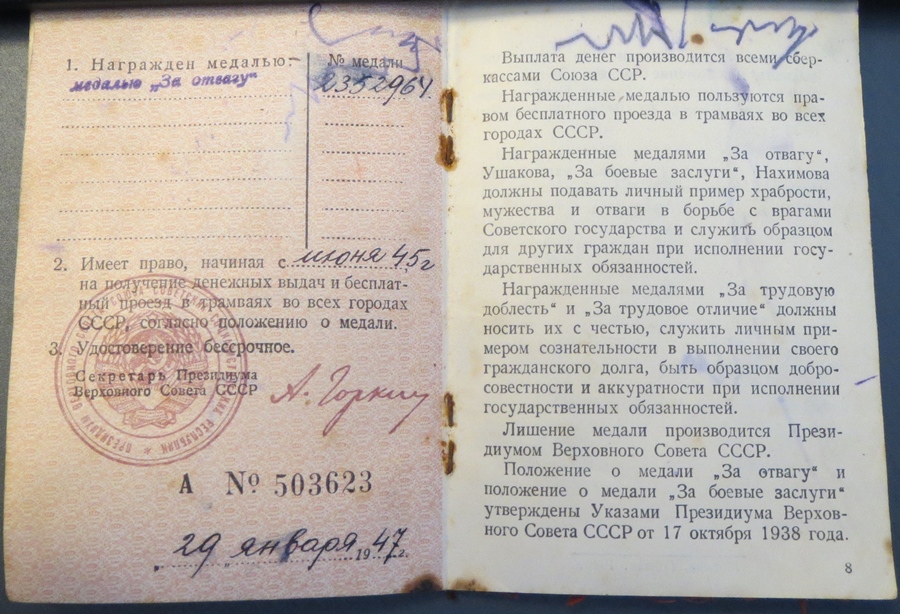 1. Награжден медалью:
№ медали
медалью „За отвагу“
2352964
2. Имеет право, начиная с июня 45г
на получение денежных выдач и бесплат-
ный проезд в трамваях во всех городах
СССР, согласно положению о медали.
3. Удостоверение бессрочное.
Секретарь Президиума
Верховного Совета СССР
А. Горкин
А № 503623
29 января 1947г.
Выплата денег производится всеми сбер-
кассами Союза ССР.
Награжденные медалью пользуются пра-
вом бесплатного проезда в трамваях во всех
городах СССР.
Награжденные медалями „За отвагу“,
Ушакова, „За боевые заслуги“, Нахимова
должны подавать личный пример храбрости,
мужества и отваги в борьбе с врагами
Советского государства и служить образцом
для других граждан при исполнении госу-
дарственных обязанностей.
Награжденные медалями „За трудовую
доблесть“ и „За трудовое отличие“ должны
носить их с честью, служить личным при-
мером сознательности в выполнении своего
гражданского долга, быть образцом добро-
совестности и аккуратности при исполнении
государственных обязанностей.
Лишение медали производится Прези-
диумом Верховного Совета СССР.
Положение о медали „За отвагу“ и
положение о медали „За боевые заслуги“
утверждены Указами Президиума Верхов-
ного Совета СССР от 17 октября 1938 года.
8